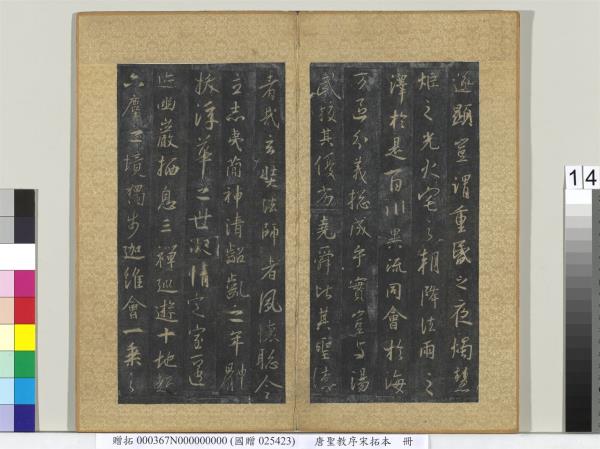 遂顯豈謂重昏之夜燭慧
炬之光火宅之朝降法雨之
澤於是百川異流同會於海
万區分義総成乎實豈与湯
武校其優劣堯舜比其聖德
者哉玄奘法師者夙懷聰令
立志夷簡神清齠齔之年體
拔浮華之世凝情定室匿
迹幽巖栖息三禪巡遊十地超
六塵之境獨步迦維會一乘之
14
贈拓 000367N000000000 (國贈 025423) 唐聖教序宋拓本 冊